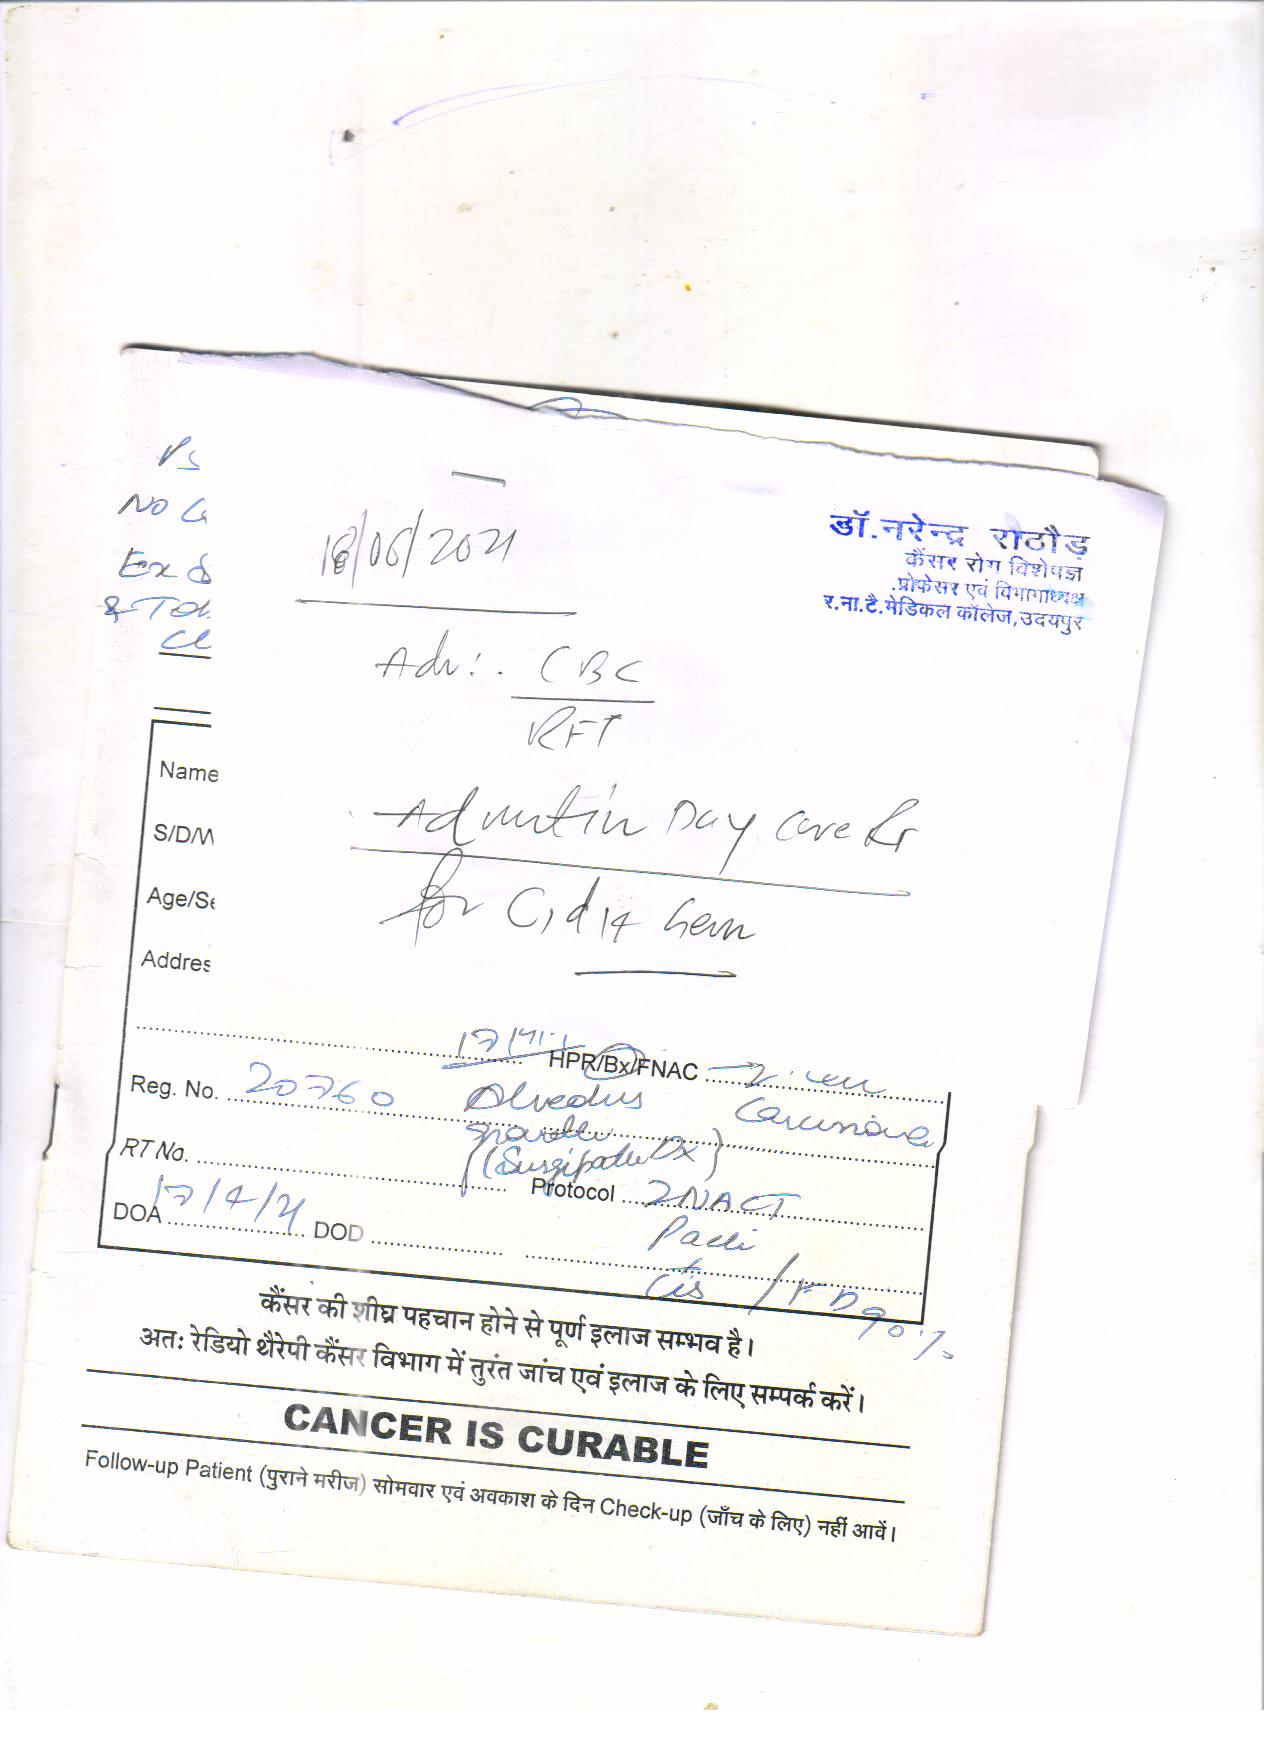 Ps
No G
Ex &
& To
Ce
18/06/2021
डॉ.नरेन्द्र राठौड़
कैंसर रोग विशेषज्ञ
प्रोफेसर एवं विभागाध्यक्ष
र.ना.टै.मेडिकल कॉलेज,उदयपुर
Adv:. CBC
RFT
Admit in Day care
for C1d14 Gem
Name
S/D/W
Age/Se
Addres
HPR/Bx/FNAC
Reg. No. 20760 Alveolus Carcinoma
(Surgipath Dx)
RT No. Protocol NACT
DOA 17/4/21 DOD Pacli
Cis / 90%
कैंसर की शीघ्र पहचान होने से पूर्ण इलाज सम्भव है।
अतः रेडियो थैरेपी कैंसर विभाग में तुरंत जांच एवं इलाज के लिए सम्पर्क करें।
CANCER IS CURABLE
Follow-up Patient (पुराने मरीज) सोमवार एवं अवकाश के दिन Check-up (जाँच के लिए) नहीं आवें।